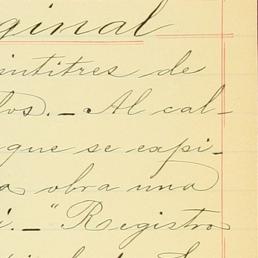 ginal
intitres de
los. — Al cal-
que se expi-
a obra una
i. — "Registro